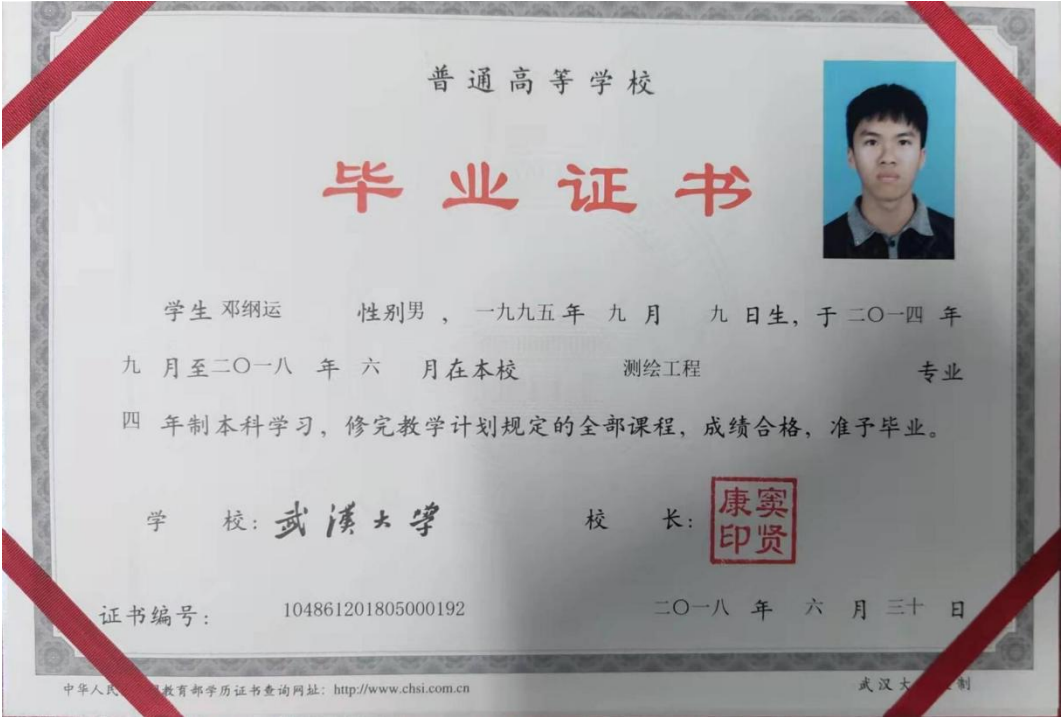 普通高等学校
毕业证书
学生 邓纲运 性别男，一九九五年 九 月 九 日生，于 二〇一四 年
九 月至二〇一八 年 六 月在本校 测绘工程 专业
四 年制本科学习，修完教学计划规定的全部课程，成绩合格，准予毕业。
学 校：武漢大學 校 长：窦贤康印
证书编号： 104861201805000192 二〇一八 年 六 月 三十 日
中华人民 教育部学历证书查询网址：http://www.chsi.com.cn 武汉大 制